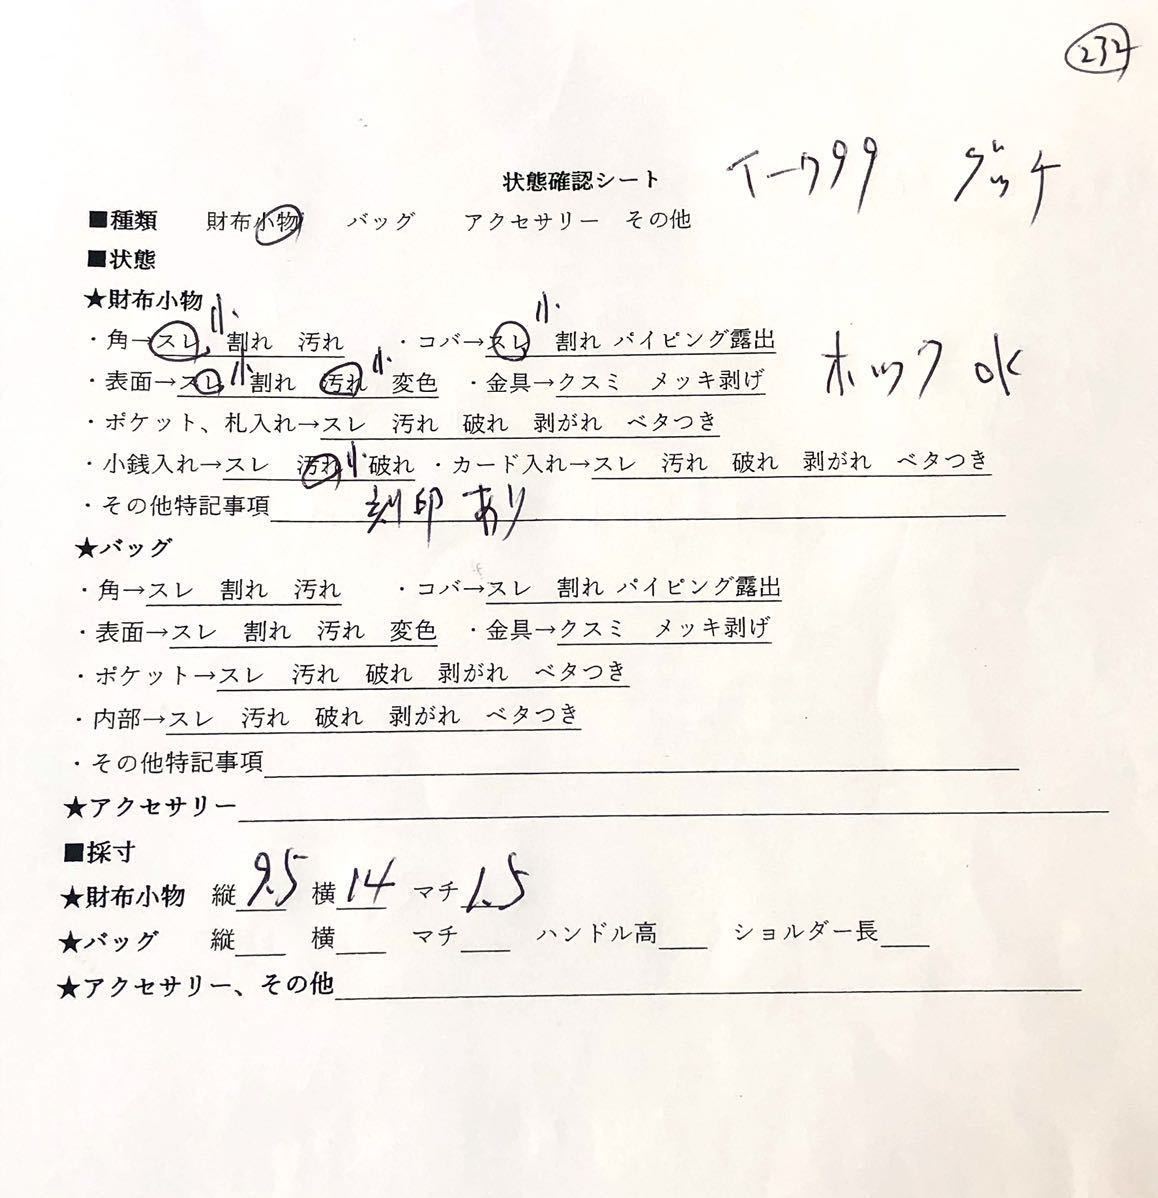 232
状態確認シート イーウ99 グッチ
■種類 財布小物 バッグ アクセサリー その他
■状態
★財布小物
・角→スレ 小 割れ 汚れ ・コバ→スレ 小 割れ パイピング露出
・表面→スレ 小 割れ 汚れ 小 変色 ・金具→クスミ メッキ剥げ ホック ok
・ポケット、札入れ→スレ 汚れ 破れ 剥がれ ベタつき
・小銭入れ→スレ 汚れ 小 破れ ・カード入れ→スレ 汚れ 破れ 剥がれ ベタつき
・その他特記事項 刻印 あり
★バッグ
・角→スレ 割れ 汚れ ・コバ→スレ 割れ パイピング露出
・表面→スレ 割れ 汚れ 変色 ・金具→クスミ メッキ剥げ
・ポケット→スレ 汚れ 破れ 剥がれ ベタつき
・内部→スレ 汚れ 破れ 剥がれ ベタつき
・その他特記事項
★アクセサリー
■採寸
★財布小物 縦 9.5 横 14 マチ 1.5
★バッグ 縦 横 マチ ハンドル高 ショルダー長
★アクセサリー、その他